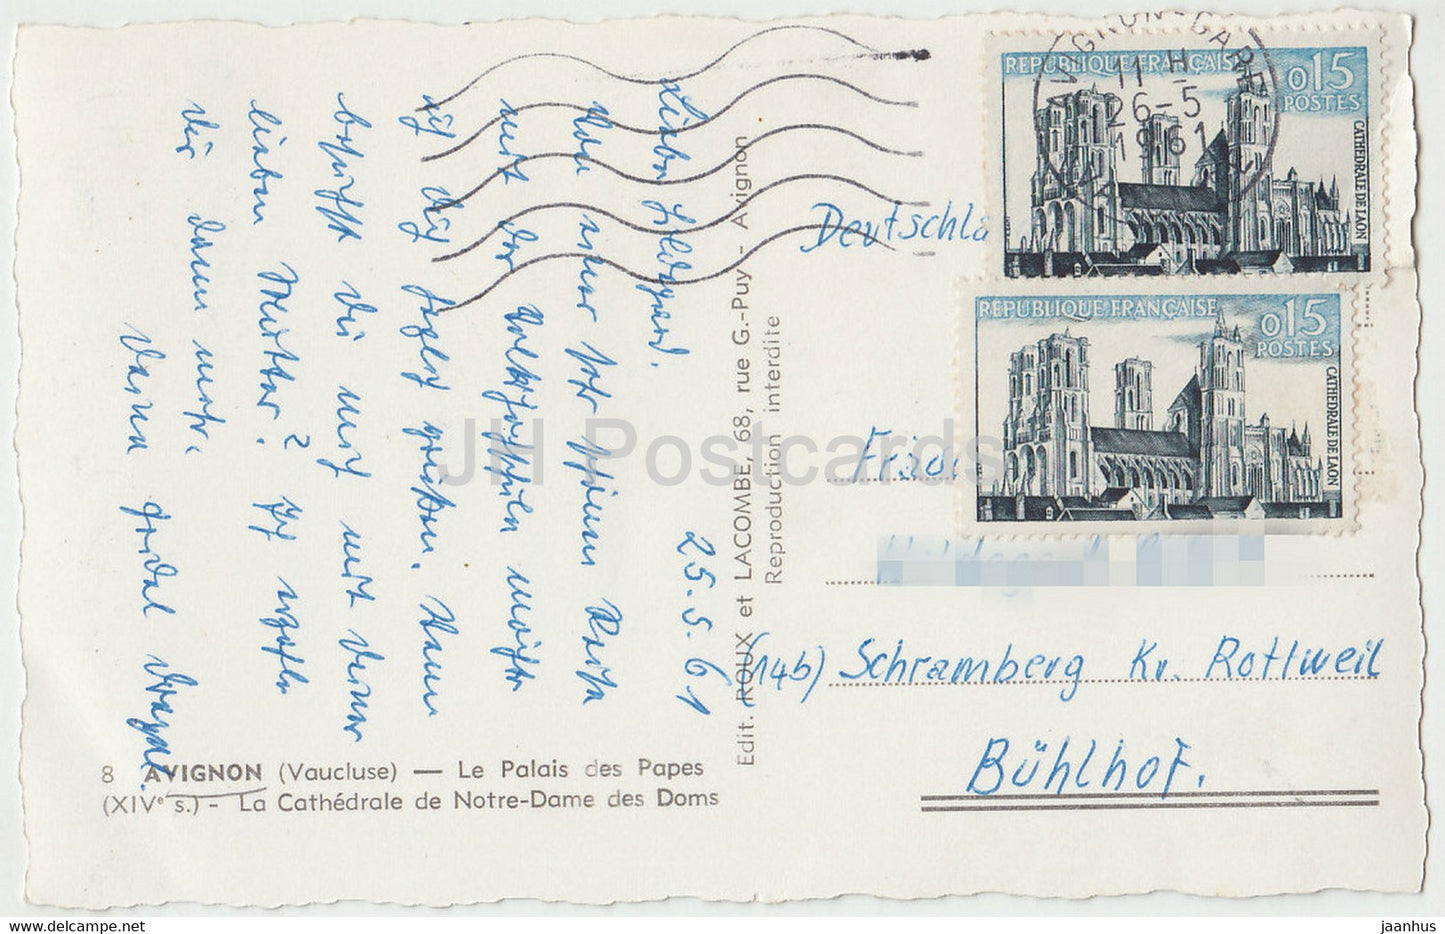 AVIGNON-GARE
11 H
26-5
1961
REPUBLIQUE FRANÇAISE
0,15
POSTES
CATHEDRALE DE LAON
REPUBLIQUE FRANÇAISE
0,15
POSTES
CATHEDRALE DE LAON
Deutschla
(14b) Schramberg Kr. Rottweil
Bühlhof.
25.5.61
Liebe Hildegard.
Von einer sehr schönen Reise
mit der Volkshochschule möchte
ich Dich herzlich grüßen. Wann
besuchst Du mich mit Deiner
lieben Mutter? Ich erzähle
Dir dann mehr.
Deine
Edit. ROUX et LACOMBE, 68, rue G.-Puy - Avignon
Reproduction interdite
8 AVIGNON (Vaucluse) — Le Palais des Papes
(XIVe s.) - La Cathédrale de Notre-Dame des Doms
JH Postcards
jaanhus